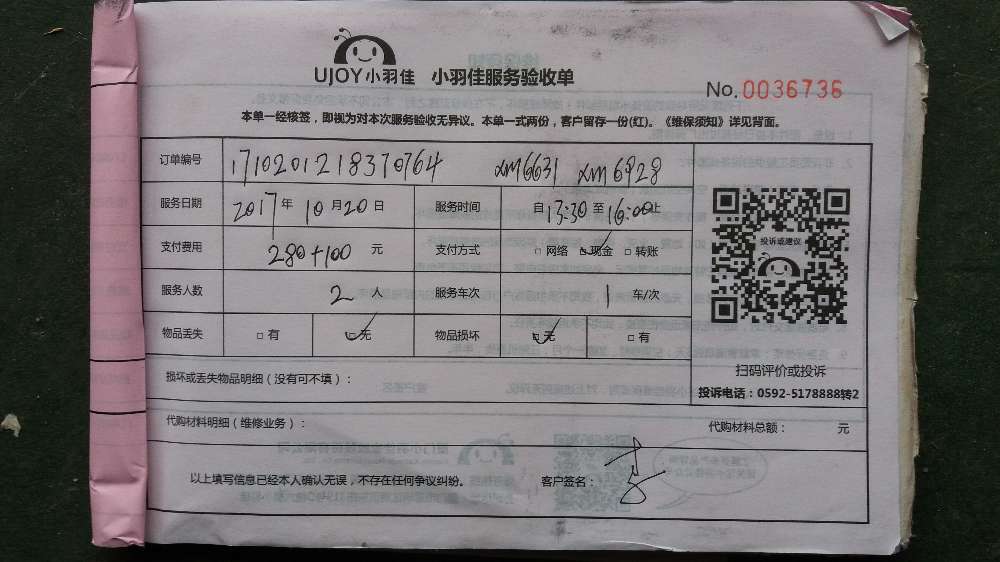 UJOY小羽佳 小羽佳服务验收单
No.0036736
本单一经核签，即视为对本次服务验收无异议。本单一式两份，客户留存一份(红)。《维保须知》详见背面。
订单编号 1710201218370764 xm6631 xm6928
服务日期 2017年10月20日 服务时间 自13:30至16:00止
支付费用 280+100 元 支付方式 □网络 □现金 □转账
投诉或建议
服务人数 2 人 服务车次 1 车/次
物品丢失 □有 □无 物品损坏 □无 □有
扫码评价或投诉
损坏或丢失物品明细（没有可不填）：
投诉电话：0592-5178888转2
代购材料明细（维修业务）： 代购材料总额： 元
以上填写信息已经本人确认无误，不存在任何争议纠纷。 客户签名：